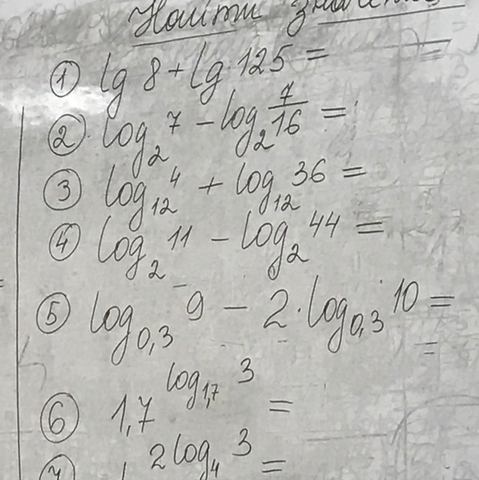 Найти
① lg 8 + lg 125 =
② log₂ 7 − log₂ 7/16 =
③ log₁₂ 4 + log₁₂ 36 =
④ log₂ 11 − log₂ 44 =
⑤ log₀,₃ 9 − 2·log₀,₃ 10 =
=
⑥ 1,7^(log₁,₇ 3) =
2log₄ 3 =